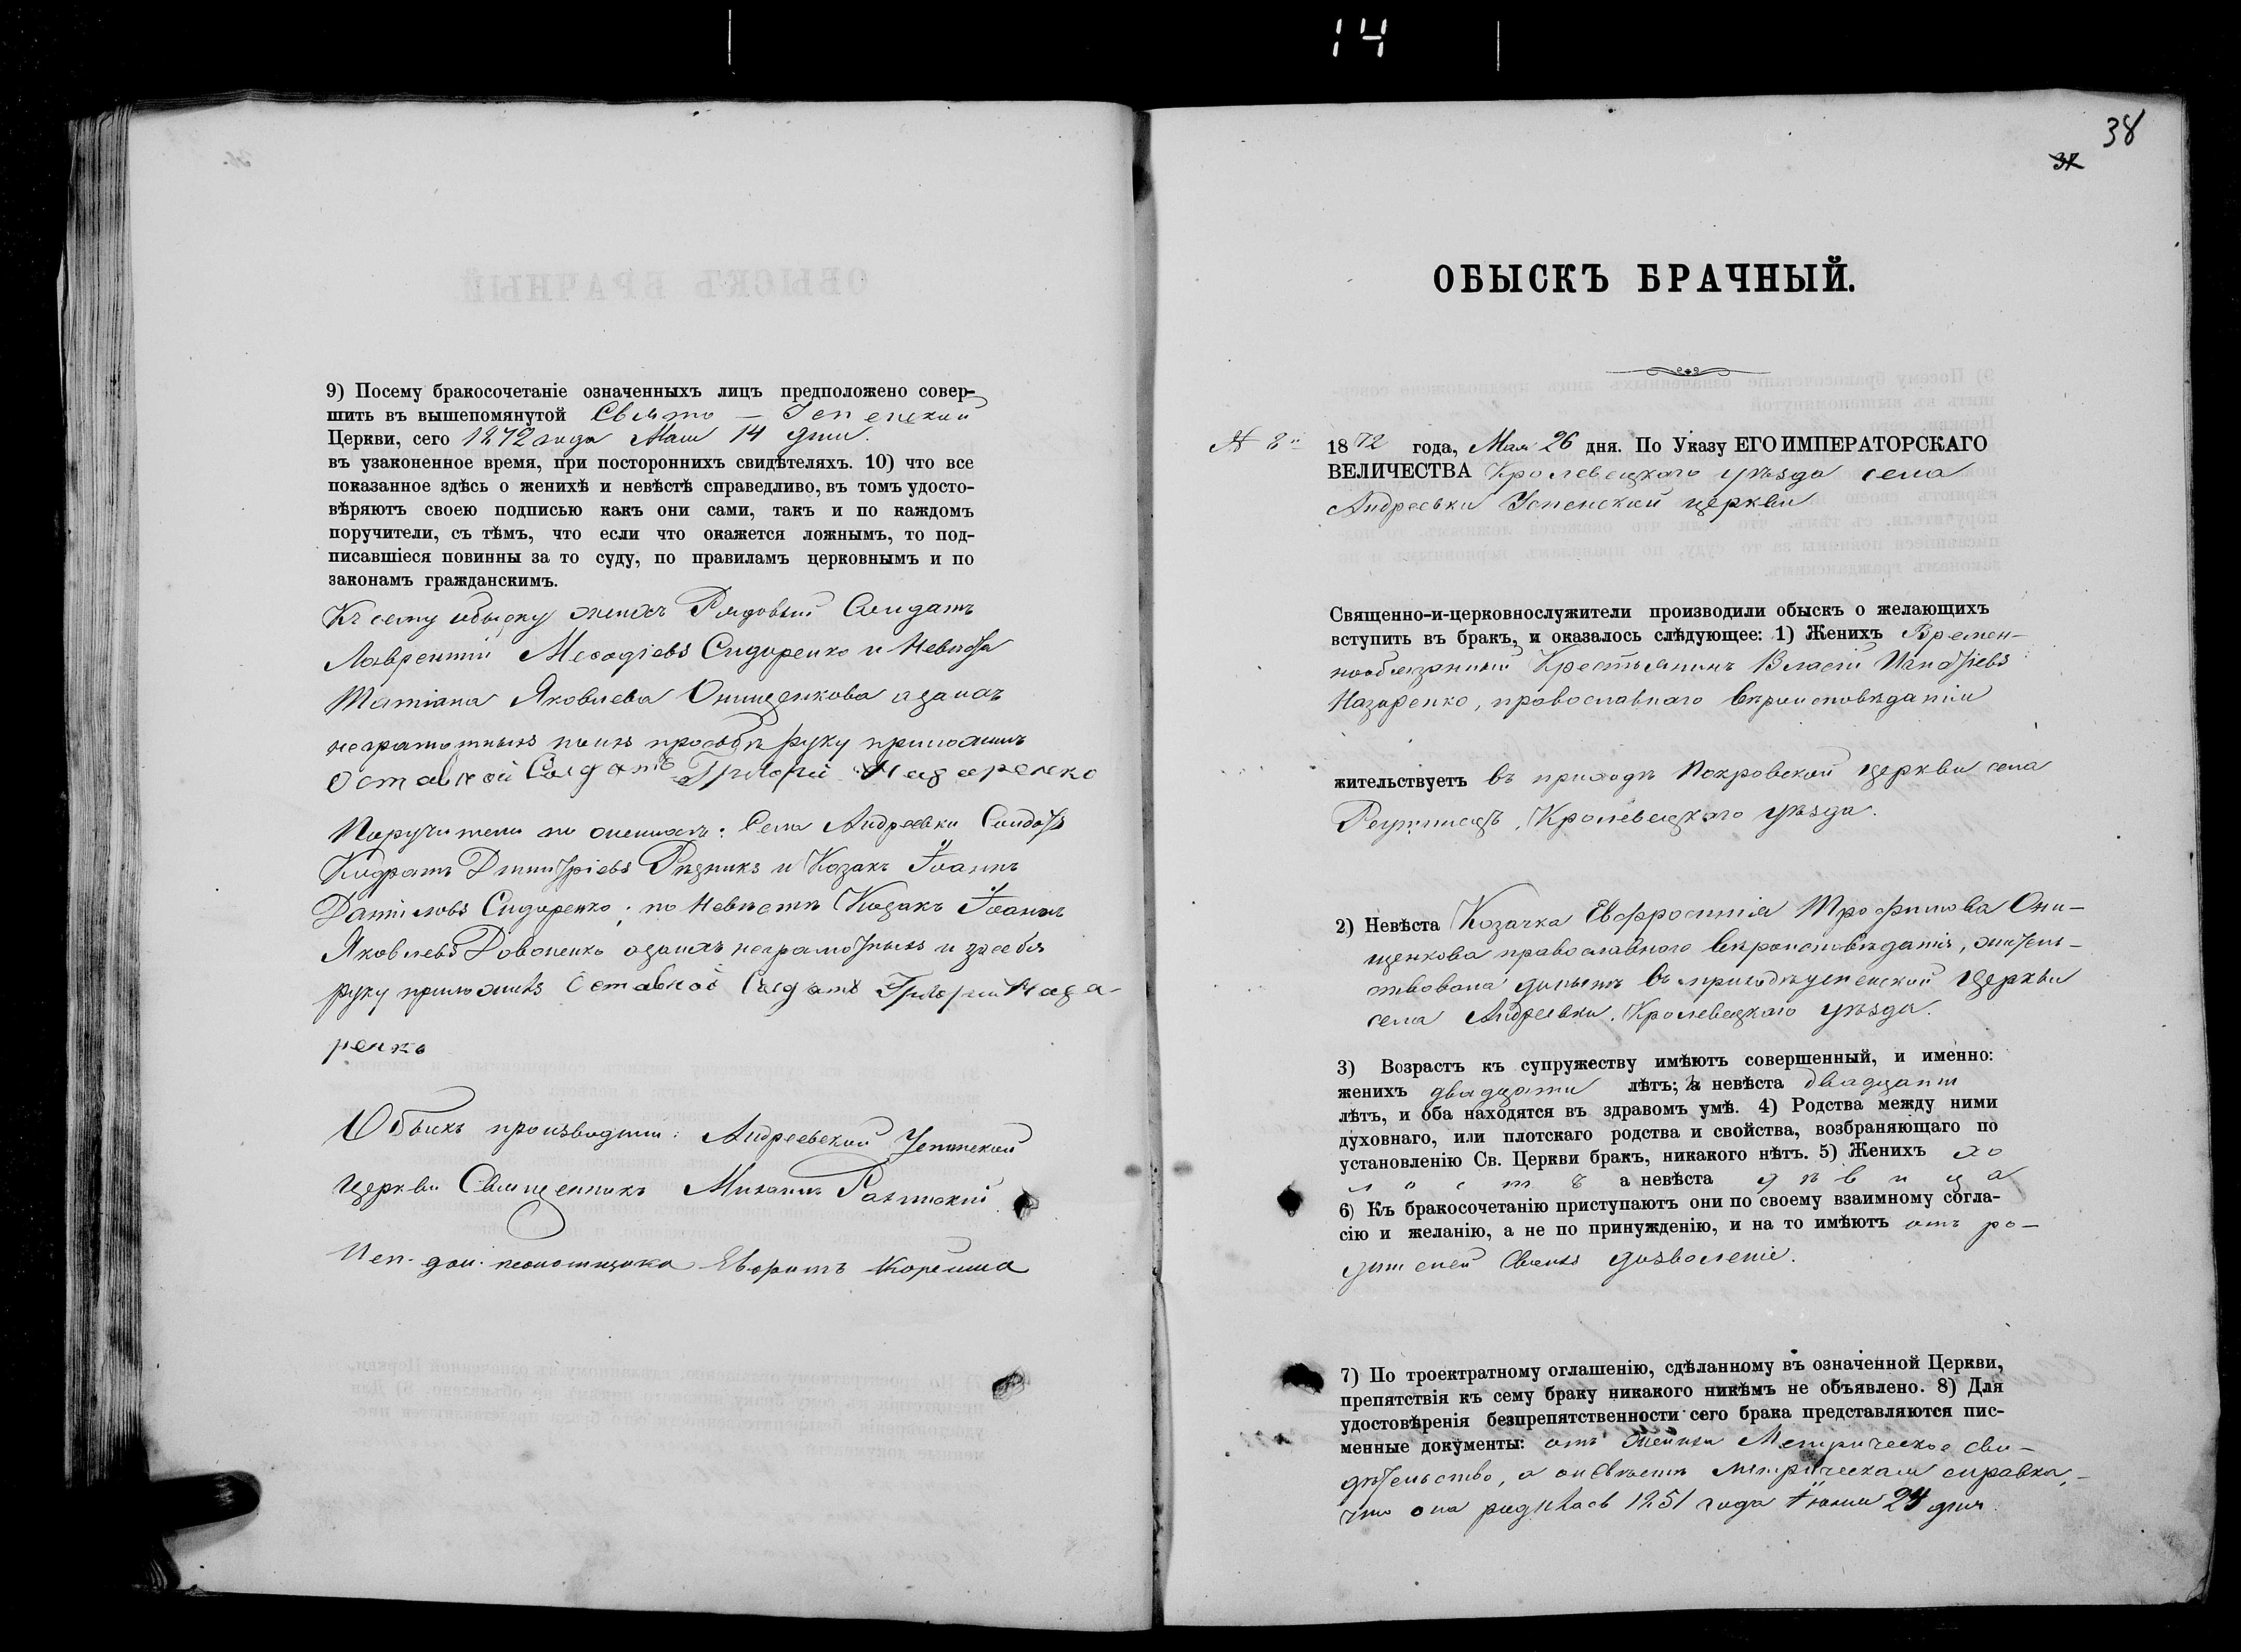 14
9) Посему бракосочетаніе означенныхъ лицъ предположено совер-
шить въ вышепомянутой Свято — Успенской
Церкви, сего 1872 года Мая 14 дня.
въ узаконенное время, при постороннихъ свидѣтеляхъ. 10) что все
показанное здѣсь о женихѣ и невѣстѣ справедливо, въ томъ удосто-
вѣряютъ своею подписью какъ они сами, такъ и по каждомъ
поручители, съ тѣмъ, что если что окажется ложнымъ, то под-
писавшіеся повинны за то суду, по правиламъ церковнымъ и по
законамъ гражданскимъ.
Къ сему обыску женихъ Рядовый Солдатъ
Лаврентій Меѳодіевъ Сидоренко и Невѣста
Татіана Яковлева Онищенкова а за нихъ
неграмотныхъ по ихъ прозьбѣ руку приложилъ
Оставной Солдатъ Григорій Назаренко
Поручители по женихѣ: Села Андреевки Солдатъ
Кодратъ Дмитріевъ Рѣзникъ и Козакъ Іоаннъ
Даниловъ Сидоренко; по Невѣстѣ Козакъ Іоаннъ
Яковлевъ Довоненко а за нихъ неграмотныхъ и за себя
руку приложилъ Оставной Солдатъ Григорий Наза-
ренко
Обыскъ производили: Андреевской Успенской
Церкви Священникъ Михаилъ
Исп. дол. псаломщика
38
37
ОБЫСКЪ БРАЧНЫЙ.
№ 8й 1872 года, Мая 26 дня. По Указу ЕГО ИМПЕРАТОРСКАГО
ВЕЛИЧЕСТВА Кролевецкаго уѣзда села
Андреевки Успенской церкви
Священно-и-церковнослужители производили обыскъ о желающихъ
вступить въ бракъ, и оказалось слѣдующее: 1) Женихъ Времен-
нообязанный Крестьянинъ Власій
Назаренко, православнаго вѣроисповѣданія
жительствуетъ въ приходѣ Покровской церкви села
Реутинецъ, Кролевецкаго уѣзда.
2) Невѣста Козачка Евфросинія Трофимова Они-
щенкова православнаго вѣроисповѣданія, житель-
ствовала донынѣ въ приходѣ Успенской Церкви
села Андреевки, Кролевецкаго уѣзда.
3) Возрастъ къ супружеству имѣютъ совершенный, и именно:
женихъ двадцати лѣтъ; а невѣста двадцати
лѣтъ, и оба находятся въ здравомъ умѣ. 4) Родства между ними
духовнаго, или плотскаго родства и свойства, возбраняющаго по
установленію Св. Церкви бракъ, никакого нѣтъ. 5) Женихъ хо
лостъ а невѣста дѣвица
6) Къ бракосочетанію приступаютъ они по своему взаимному согла-
сію и желанію, а не по принужденію, и на то имѣютъ отъ ро-
дителей своихъ дозволеніе.
7) По троектратному оглашенію, сдѣланному въ означенной Церкви,
препятствія къ сему браку никакого никѣмъ не объявлено. 8) Для
удостовѣренія безпрепятственности сего брака представляются пис-
менные документы: отъ жениха Метрическое сви-
дѣтельство, о невѣстѣ метрическая справка,
что она родилась 1851 года Іюня 24 дня